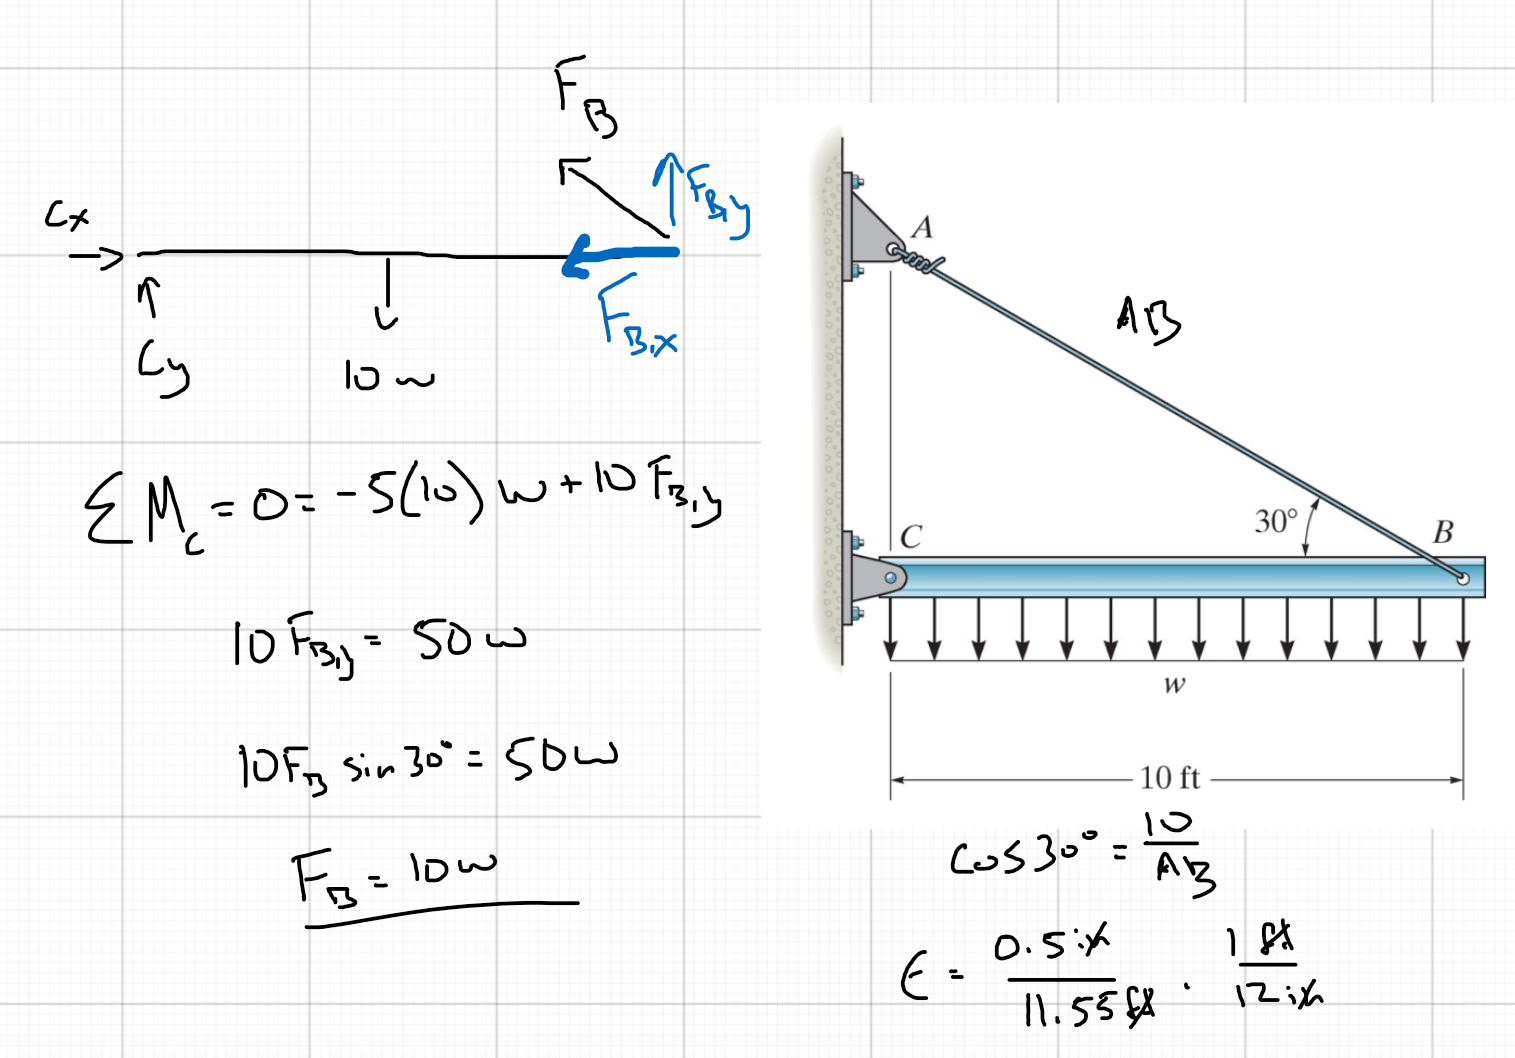 F_B
F_B,y
C_x
F_B,x
C_y
10 w
ΣM_C = 0 = -5(10) w + 10 F_B,y
10 F_B,y = 50 w
10 F_B sin 30° = 50 w
F_B = 10 w
A
AB
30°
B
C
w
10 ft
cos 30° = 10 / AB
ϵ = 0.5 in / 11.55 ft · 1 ft / 12 in